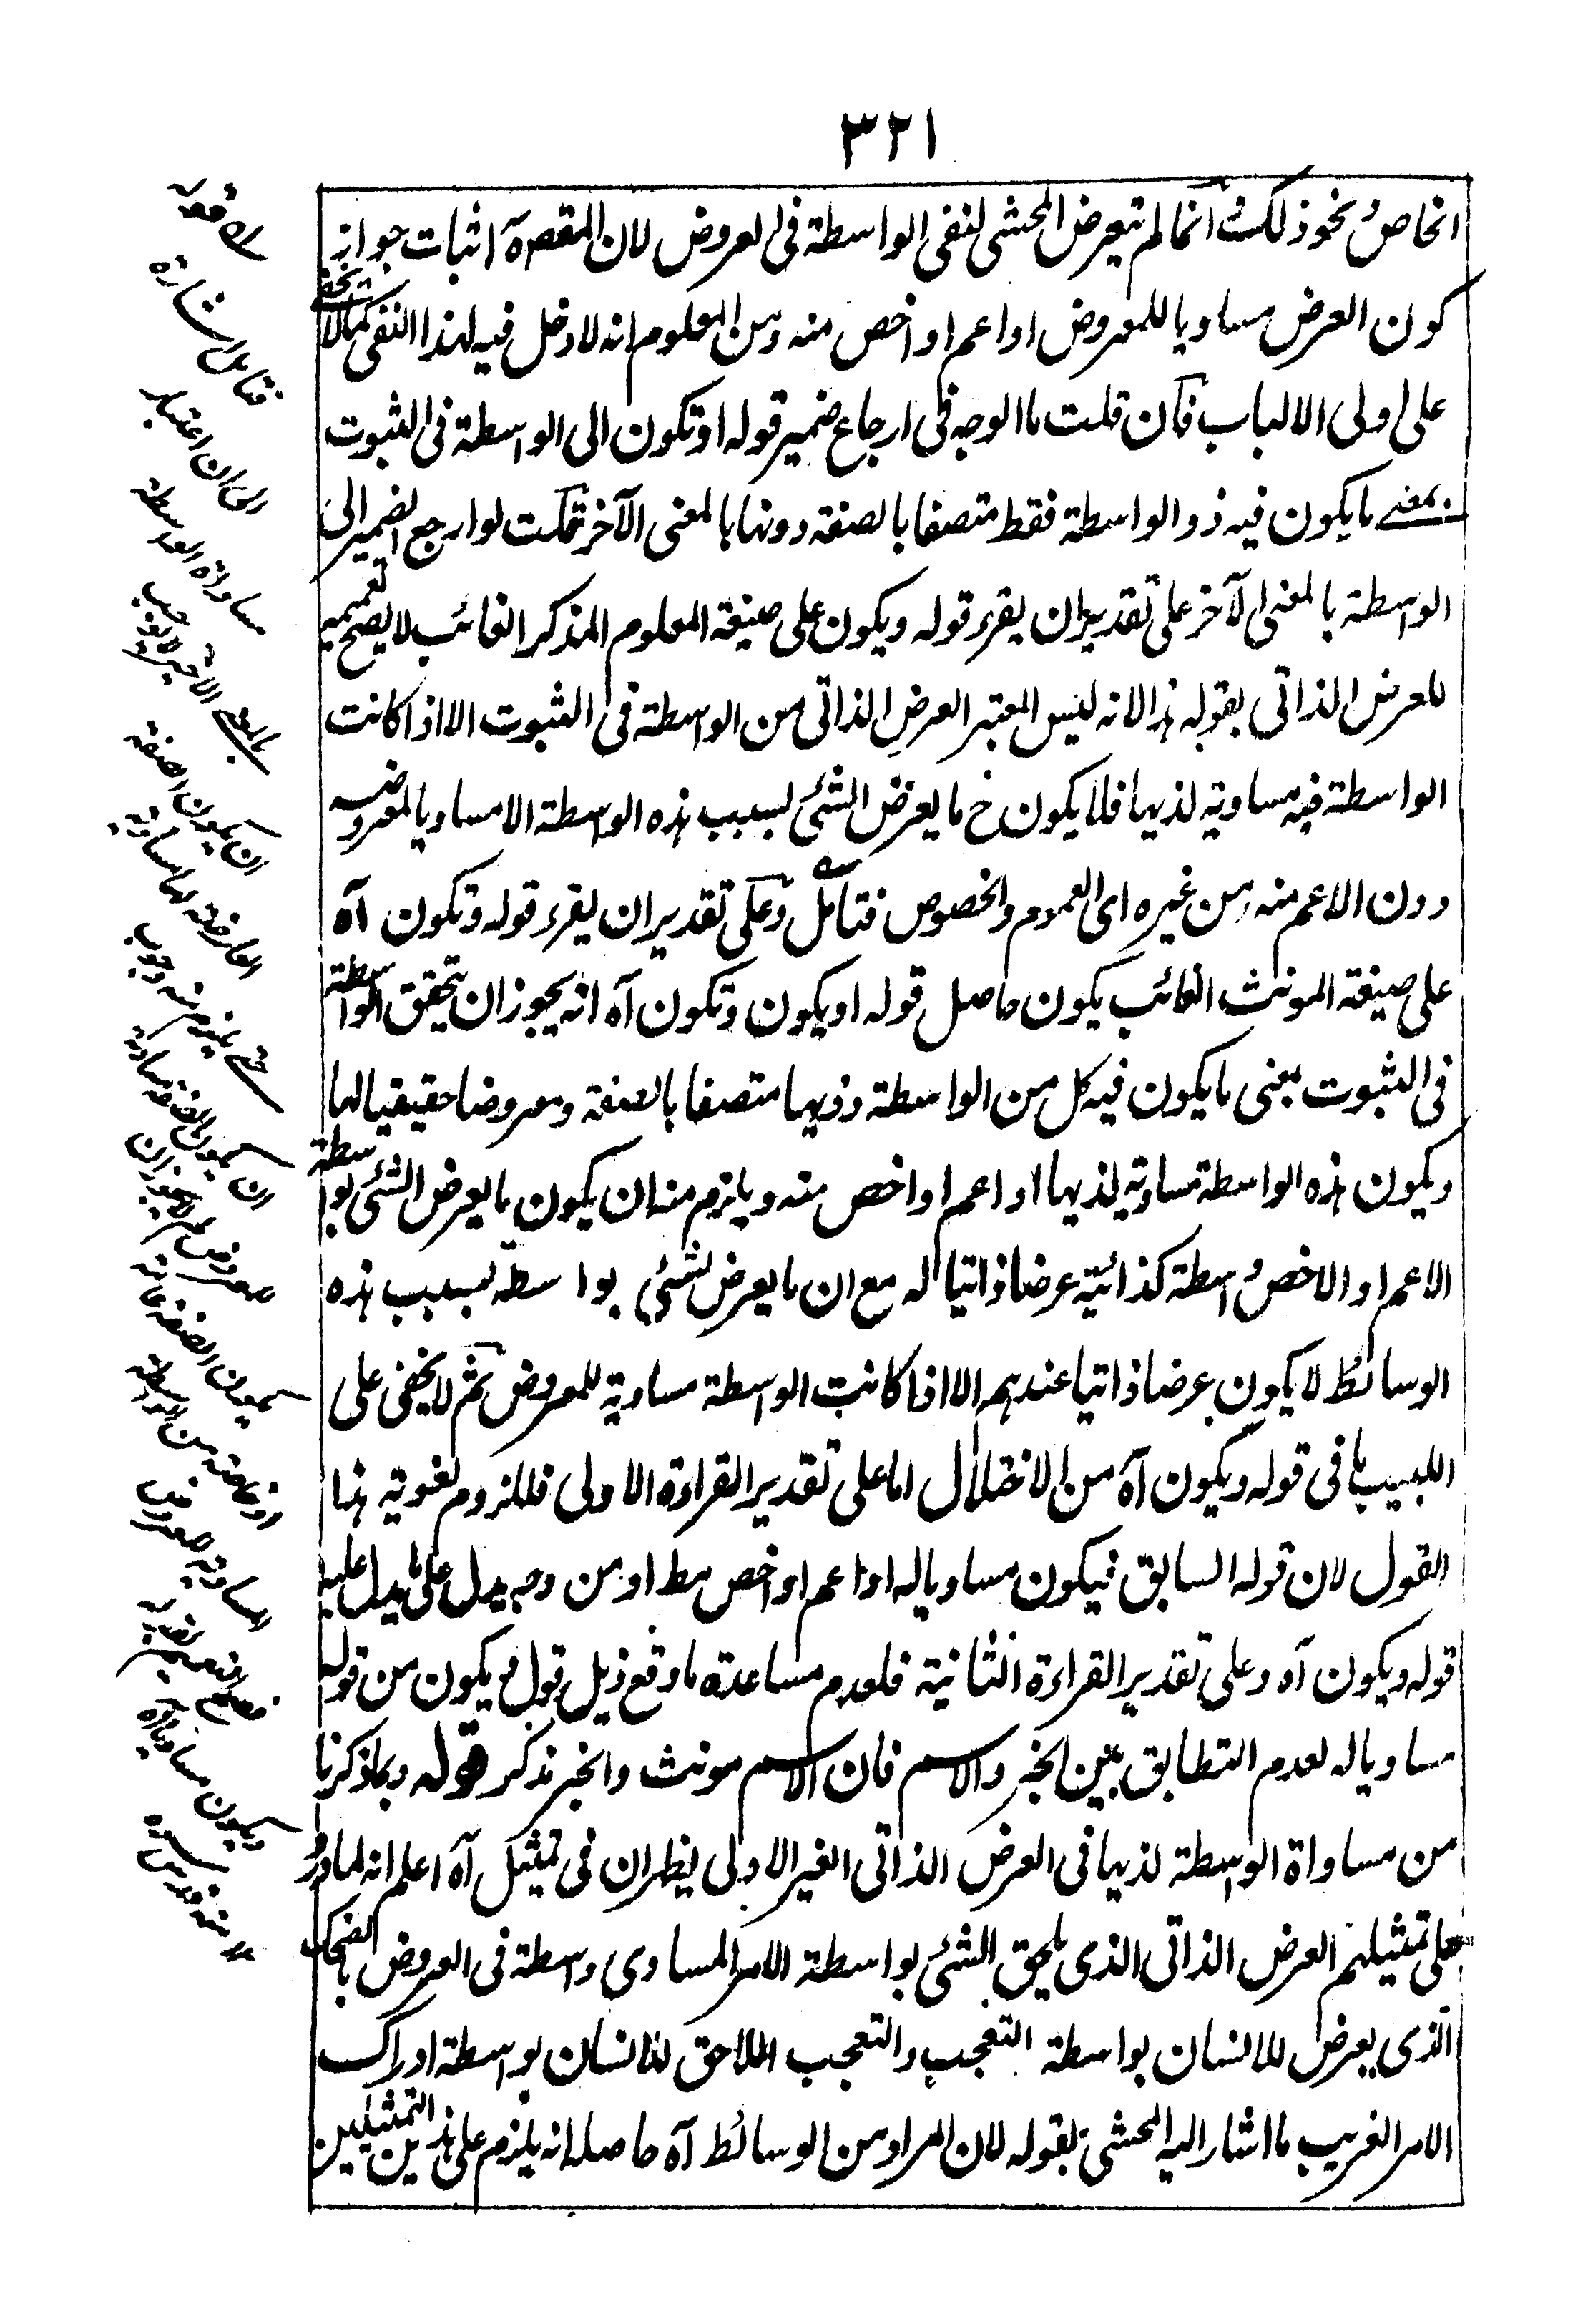 ٣٢١
الخاص ونحو ذلك وانما لم يتعرض المحشى لنفى الواسطة فى العروض لان المقصود آه اثبات جواز
كون العرض مساويا للمعروض او اعم او اخص منه ومن المعلوم انه لا دخل فيه لهذا النفى كما لا يخفى
على اولى الالباب فان قلت ما الوجه فى ارجاع ضمير قوله او تكون الى الواسطة فى الثبوت
بمعنى ما يكون فيه ذو الواسطة فقط متصفا بالصفة دونها بالمعنى الآخر قلت لو ارجع الضمير الى
الواسطة بالمعنى الآخر على تقدير ان يقرء قوله ويكون على صيغة المعلوم المذكر الغائب لا يصح تعميمه
للعرض الذاتى بقوله هذا لانه ليس المعتبر العرض الذاتى من الواسطة فى الثبوت الا اذا كانت
الواسطة فيه مساوية لذيها فلا يكون ح ما يعرض الشئ بسبب هذه الواسطة الا مساويا لمعروضه
دون الاعم منه ومن غيره اى العموم والخصوص فتامل وعلى تقدير ان يقرء قوله وتكون آه
على صيغة المونث الغائب يكون حاصل قوله او يكون وتكون آه انه يجوز ان يتحقق الواسطة
فى الثبوت بمعنى ما يكون فيه كل من الواسطة وذيها متصفا بالصفة ومعروضا حقيقيا لها
ويكون هذه الواسطة مساوية لذيها او اعم او اخص منه ويلزم منه ان يكون ما يعرض الشئ بواسطة
الاعم او الاخص واسطة كذائية عرضا ذاتيا له مع ان ما يعرض لشئ بواسطة بسبب هذه
الوسائط لا يكون عرضا ذاتيا عندهم الا اذا كانت الواسطة مساوية للمعروض ثم لا يخفى على
اللبيب ما فى قوله ويكون آه من الاختلال اما على تقدير القراءة الاولى فللزوم لغوية هذا
القول لان قوله السابق فيكون مساويا له او اعم او اخص مط او من وجه يدل على ما يدل عليه
قوله ويكون آه وعلى تقدير القراءة الثانية فلعدم مساعدة ما وقع ذيل قوله ويكون من قوله
مساويا له لعدم التطابق بين الخبر والاسم فان الاسم مونث والخبر مذكر قوله وبما ذكرنا
من مساواة الواسطة لذيها فى العرض الذاتى الغير الاولى يظهر ان فى تمثيل آه اعلم انه لما ورد
على تمثيلهم العرض الذاتى الذى يلحق الشئ بواسطة الامر المساوى واسطة فى العروض بالضحك
الذى يعرض للانسان بواسطة التعجب والتعجب اللاحق للانسان بواسطة ادراك
الامر الغريب ما اشار اليه المحشى بقوله لان المراد من الوسائط آه حاصله انه يلزم على هذين التمثيلين
قوله
فتامل اشارة
الى ان اعتبار
مساواة الواسطة
بالمعنى الاخير لا يوجب
ان يكون الصفة
العارضة لها مساوية
حتى يلزم منه وجوب
ان يكون الصفة مساوية
لمعروض لم لا يجوز ان
يكون الصفة عامة
او خاصة من الواسطة
المساوية للمعروض
فصح تعميم بقوله
ويكون مساويا آه
منه قدس سره